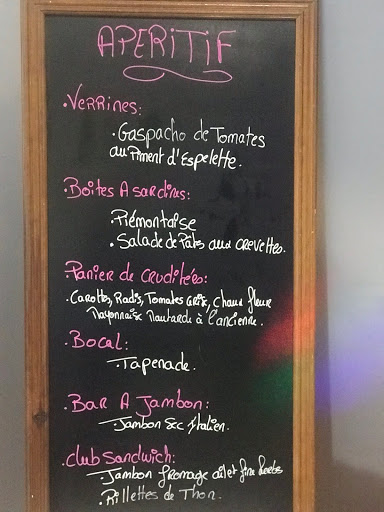 APERITIF
.VERRINES:
.Gaspacho de Tomates
au Piment d'Espelette.
.Boites A sardines:
.Piémontaise
.Salade de Pâtes aux crevettes.
Panier de crudités:
.Carottes, Radis, Tomates cerise, choux fleur
Mayonnaise Moutarde à l'ancienne.
.Bocal:
.Tapenade.
.Bar A Jambon:
.Jambon sec Italien.
.club Sandwich:
.Jambon fromage ail et fine herbes
.Rillettes de Thon.